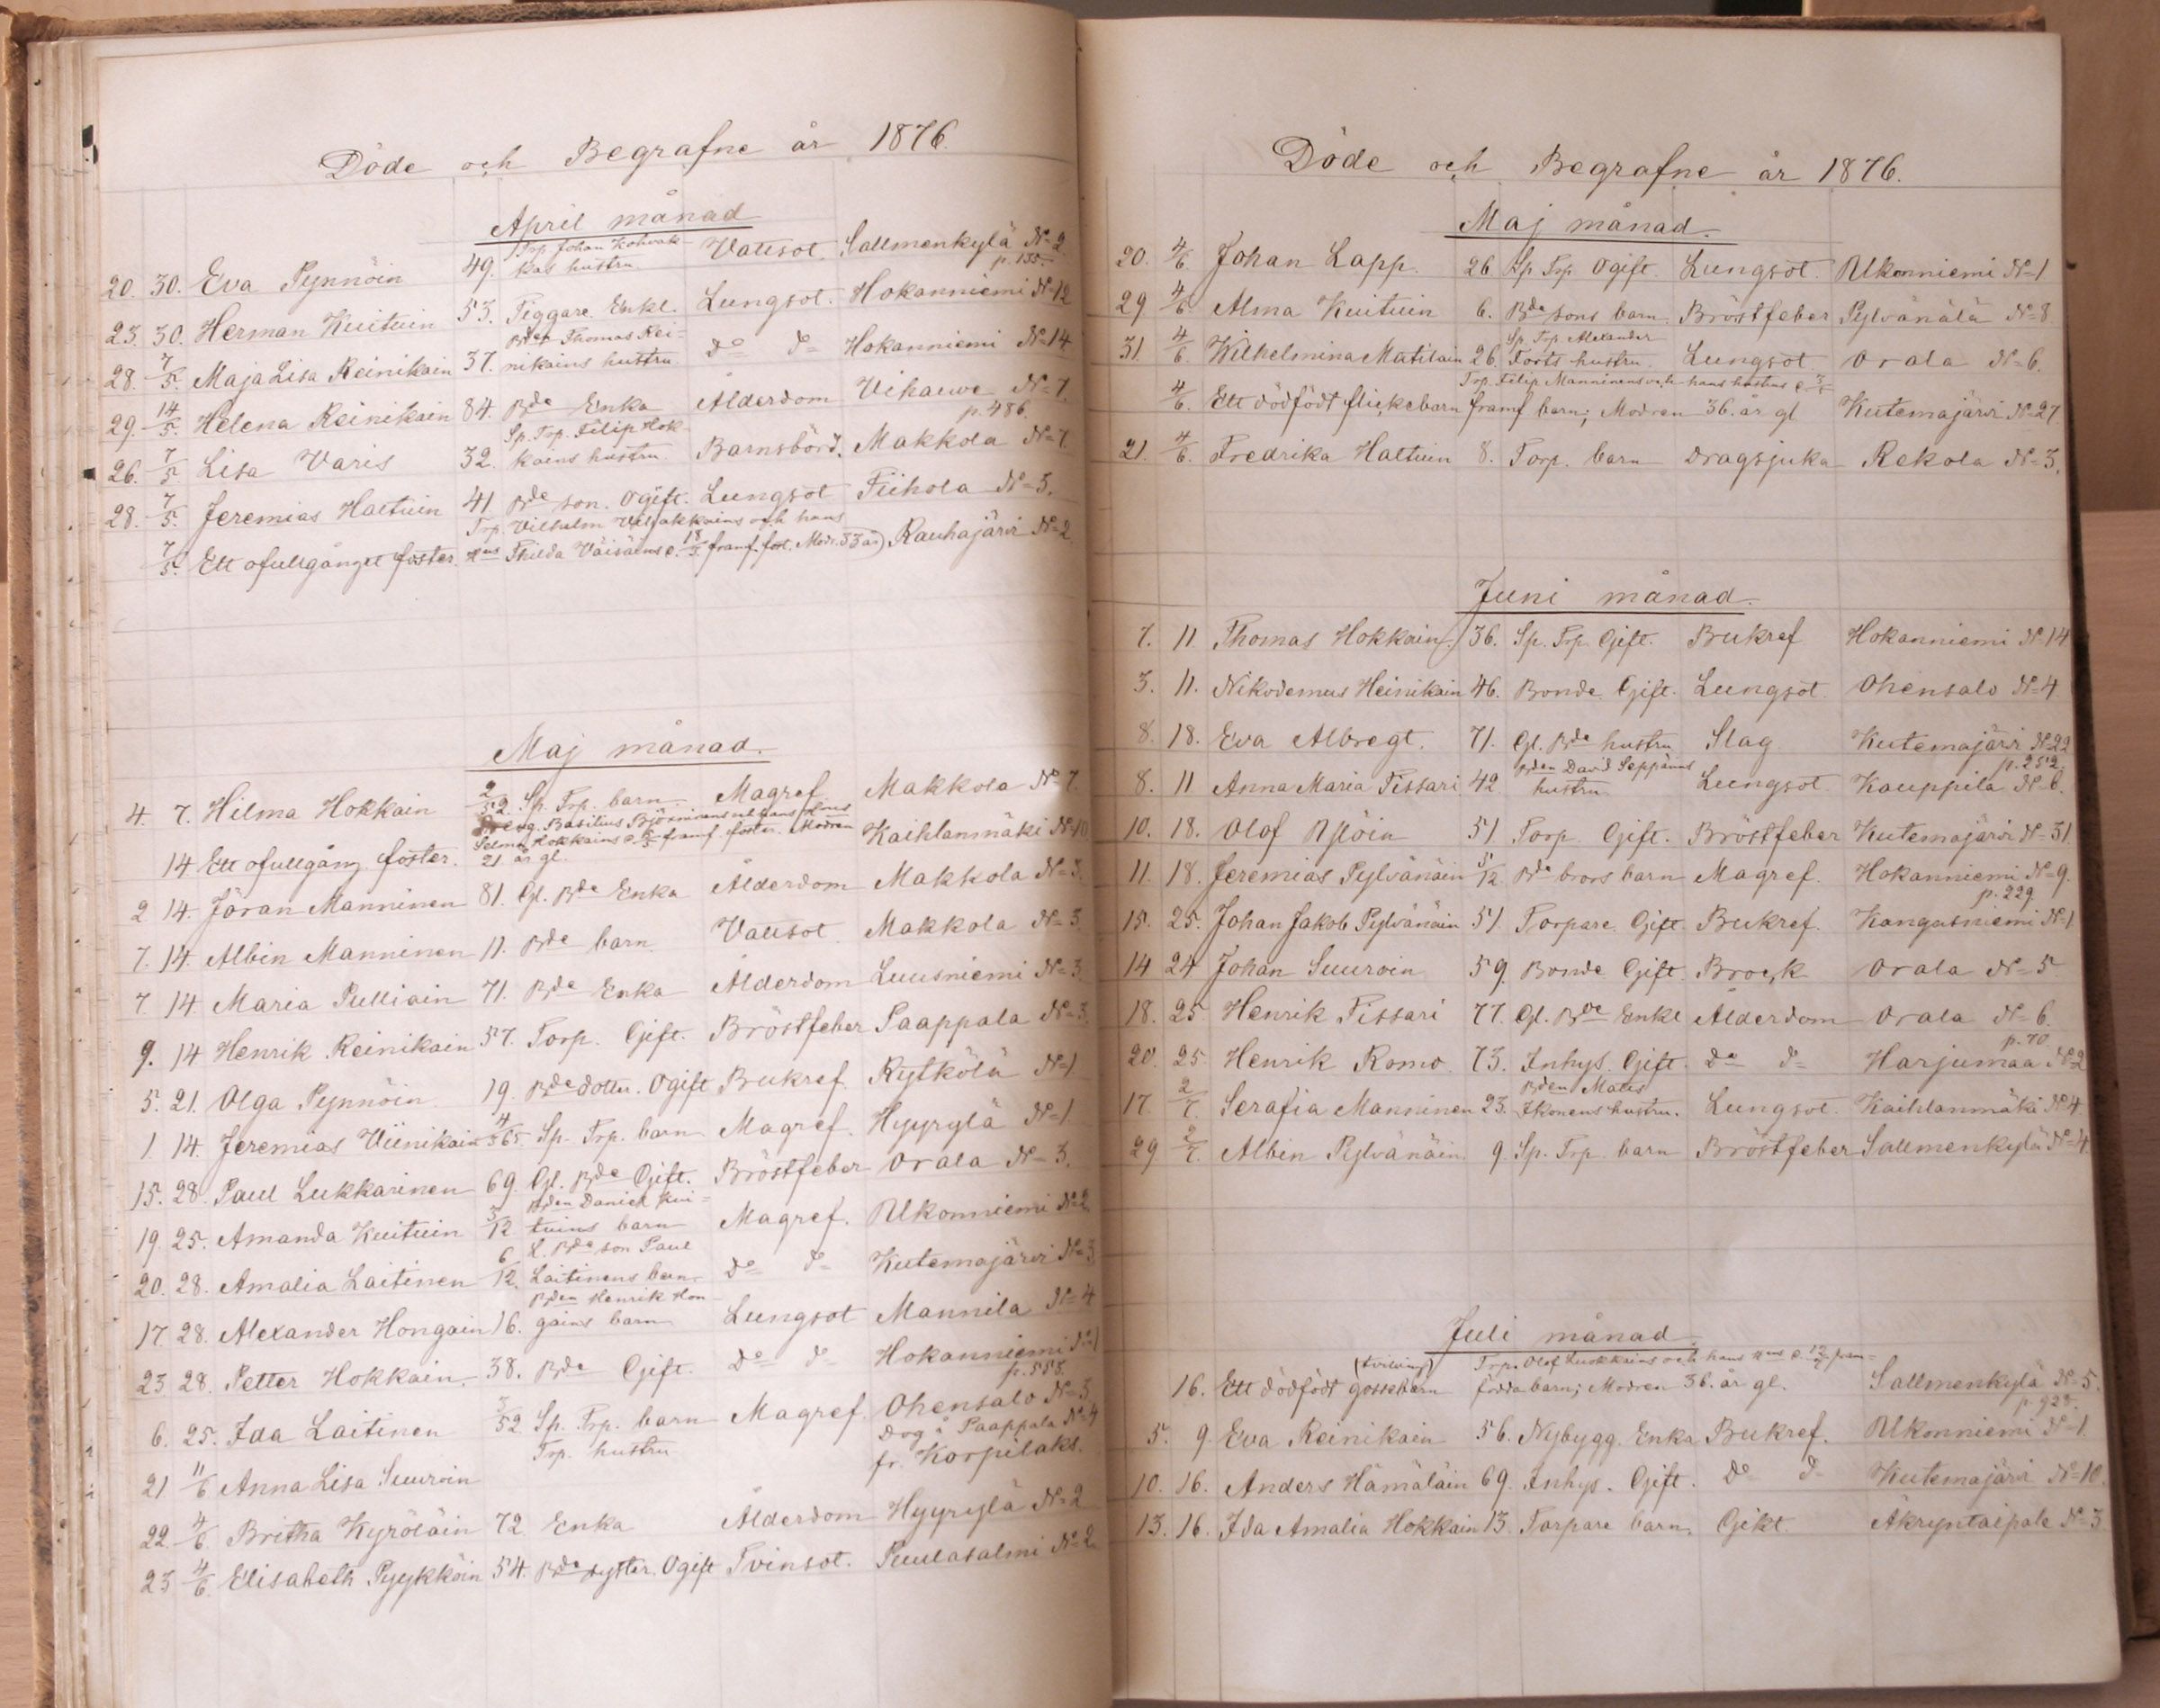 Döde och Begrafne år 1876.
April månad
20. 30. Eva Pynnöin 49. Trp. Johan Kohvakkas hustru Vattsot. Sallmenkylä N=2. p. 155.
23. 30. Herman Kuituin 53. Tiggare. Enkl. Lungsot. Hokanniemi N=12
28. 7/5. Maja Lisa Reinikain 37. Bden Thomas Reinikains hustru. do do Hokanniemi N=14
29. 14/5. Helena Reinikain 84. Bde Enka Ålderdom Vihavuo N=7. p. 486.
26. 7/5 Lisa Varis 32. Sp. Trp. Filip Hokkains hustru. Barnsbörd. Makkola N=7.
28. 7/5. Jeremias Haltuin 41 Bde son. Ogift. Lungsot Tiihola N=5.
7/5. Ett ofullgånget foster. Trp. Vilhelm och hans Hus Thilda Väisäins e. 18/3 framf. fost. Modr. 33 år) Rauhajärvi N=2.
Maj månad.
4. 7. Hilma Hokkain 2/52. Sp. Trp. barn Magref. Makkola N=7.
14 Ett ofullgång. foster. Basilius Björninens och hans Hus Selma Hokkains framf. foster. Modren 21 år gl. Kaihlanmäki N=10
2 14. Jöran Manninen 81. Gl. Bde Enka Ålderdom Makkola N=3.
7. 14. Albin Manninen 11. Bde barn Vattsot. Makkola N=3.
7 14. Maria Pulliain 71. Bde Enka Ålderdom Luusniemi N=3.
9. 14 Henrik Reinikain 57. Torp. Gift. Bröstfeber Paappala N=3.
5. 21. Olga Pynnöin 19. Bde dotter. Ogift Bukref. Rytkölä N=1
1 14. Jeremias Viinikain 4/365 Sp. Trp. barn Magref. Hyyrylä N=1.
15. 28. Paul Lukkarinen 69. Gl. Bde Gift. Bröstfeber Orala N=3.
19. 25. Amanda Kuituin 3/12 Bden Daniel Kuituins barn Magref. Ukonniemi N=2
20. 28. Amalia Laitinen 6/12. L. Bde son Paul Laitinens barn do do Kutemajärvi N=3
17 28. Alexander Hongain 16. Bden Henrik Hongains barn Lungsot Mannila N=4
23 28. Petter Hokkain. 38. Bde Gift. do do Hokanniemi N=1 p. 553.
6. 25. Ida Laitinen 3/52 Sp. Trp. barn Magref. Ohensalo N=3.
21 11/6 Anna Lisa Suuroin Trp. hustru Dog å Paappala N=4 fr. Korpilaks.
22. 4/6. Britha Kyröläin 72. Enka Ålderdom Hyyrylä N=2
23 4/6. Elisabeth Pyykköin 54. Bde syster. Ogift Tvinsot. Puulasalmi N=2.
Döde och Begrafne år 1876.
Maj månad.
20. 4/6 Johan Lapp. 26 Sp Trp Ogift. Lungsot. Ukonniemi N=1
29 4/6 Alma Kuituin 6. Bde sons barn Bröstfeber Pylvänälä N=8
31. 4/6. Wilhelmina Matilain 26. Sp. Trp. Alexander Forts hustru Lungsot Orala N=6.
4/6. Ett dödfödt flickebarn Trp. Filip Manninens och hans hustrus framf barn; Modren 36. år gl Kutemajärvi N=27
21. 4/6. Fredrika Haltuin 8. Torp. barn Dragsjuka Rekola N=3.
Juni månad.
7. 11. Thomas Hokkain. 36. Sp. Trp. Gift. Bukref Hokanniemi N=14
3. 11. Nikodemus Heinikain 46. Bonde Gift. Lungsot. Ohensalo N=4
8. 18. Eva Albregt. 71. Gl. Bde hustru Slag Kutemajärvi N=22 p. 252.
8. 11 Anna Maria Tissari 42. Bden David Seppäins hustru Lungsot Kauppila N=6.
10. 18. Olof Ylöin 51 Torp. Gift. Bröstfeber Kutemajärvi N=31
11. 18. Jeremias Pylvänäin 5/12. Bde brors barn Magref. Hokanniemi N=9. p. 229.
15. 25. Johan Jakob Pylvänäin 51. Torpare. Gift. Bukref. Kangasniemi N=1
14 24 Johan Suuroin 59. Bonde Gift. Bråck Orala N=5
18. 25 Henrik Tissari 77. Gl. Bde Enkl Ålderdom Orala N=6. p. 70.
20. 25. Henrik Romo 73. Inhys. Gift. do do Harjumaa N=2
17. 2/7. Serafia Manninen 23. Bden Matts Ikonens hustru. Lungsot. Kaihlanmäki N=4
29 2/7. Albin Pylvänäin. 9. Sp. Trp. barn Bröstfeber Sallmenkylä N=4.
Juli månad.
16. Ett dödfödt gossebarn (tvilling) Trp. Olof Luukkains och hans Hus e. framfödda barn; Modren 36. år gl. Sallmenkylä N=5. p. 928.
5. 9. Eva Reinikain 56. Nybygg. Enka Bukref. Ukonniemi N=1.
10. 16. Anders Hämäläin 69. Inhys. Gift. do do Kutemajärvi N=10.
13. 16. Ida Amalia Hokkain 13. Torpare barn. Gikt. Äkryntaipale N=3